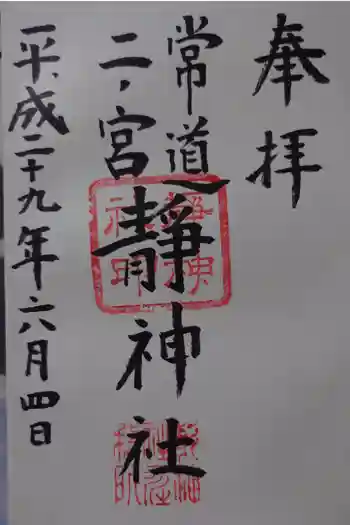 奉拝
常道
二ノ宮
靜神社
平成二十九年六月四日
靜神社印